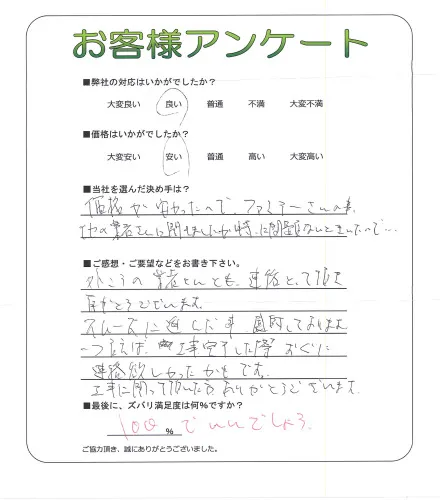 お客様アンケート
■弊社の対応はいかがでしたか？
大変良い 良い 普通 不満 大変不満
■価格はいかがでしたか？
大変安い 安い 普通 高い 大変高い
■当社を選んだ決め手は？
価格が安かったので、ファミテーさんの事、
他の業者さんに聞きましたが特に問題なしときいたので…
■ご感想・ご要望などをお書き下さい。
外こうの業者さんとも、連絡とって頂き
有がとうございます。
スムーズに進んだ事、感謝しております
一つ言えば、工事完了した際すぐに
連絡欲しかったかもです。
工事に関って頂いた方ありがとうございます。
■最後に、ズバリ満足度は何％ですか？
100 ％ でいいでしょう。
ご協力頂き、誠にありがとうございました。